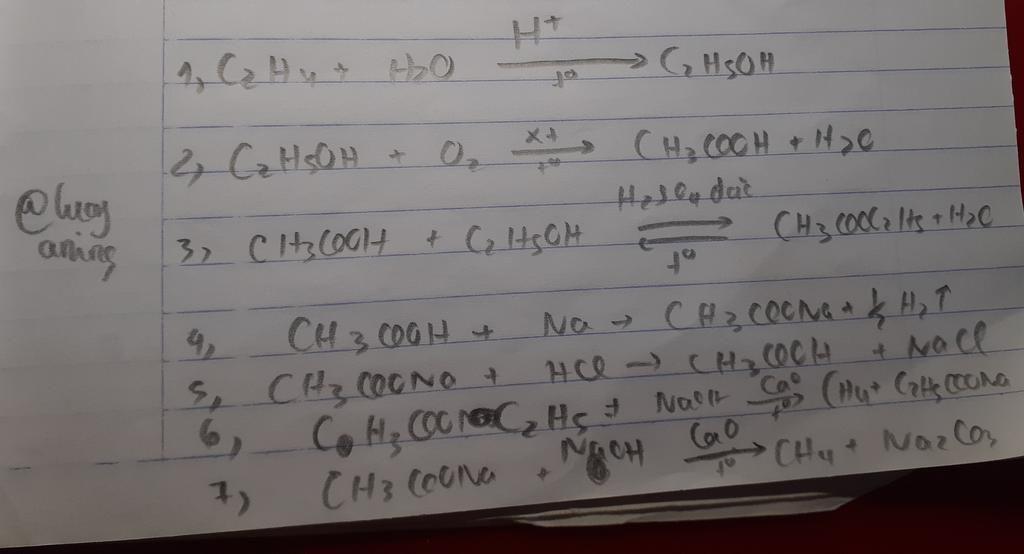 1, C2H4 + H2O H+ → t° C2H5OH
2, C2H5OH + O2 xt → t° CH3COOH + H2O
@lucy
3, CH3COOH + C2H5OH H2SO4 đặc ⇌ t° CH3COOC2H5 + H2O
aning
4, CH3COOH + Na → CH3COONa + ½ H2↑
5, CH3COONa + HCl → CH3COOH + NaCl
6, CH3COOC2H5 + NaOH CaO → t° CH4 + C2H5COONa
7, CH3COONa + NaOH CaO → t° CH4 + Na2CO3